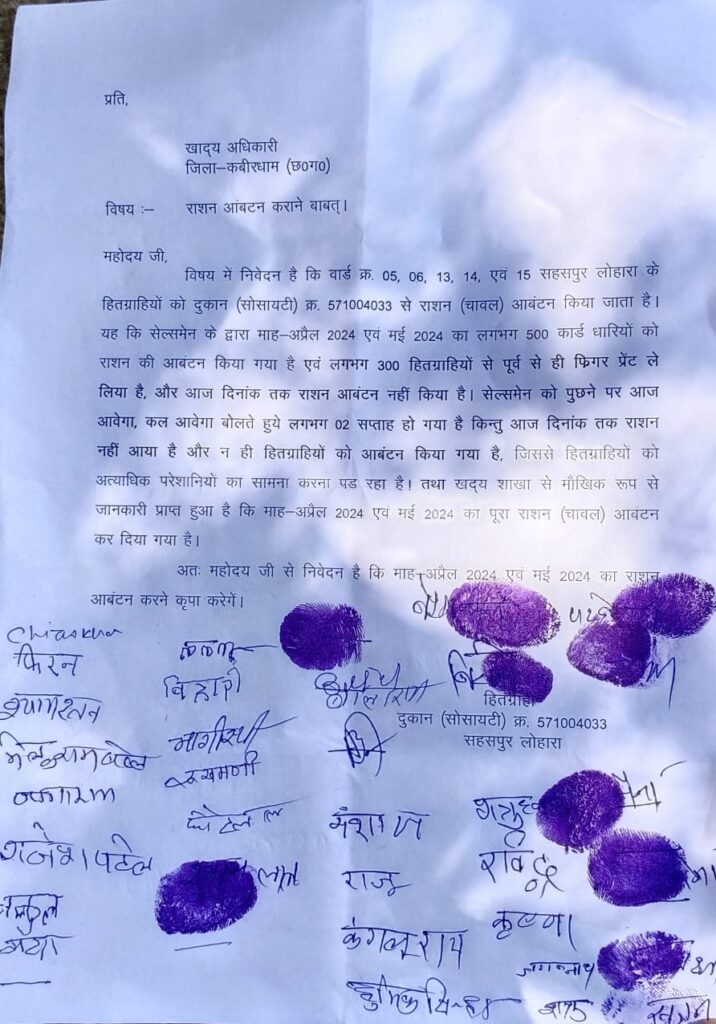 प्रति,
खाद्य अधिकारी
जिला–कबीरधाम (छ0ग0)
विषय :– राशन आंबटन कराने बाबत्।
महोदय जी,
विषय में निवेदन है कि वार्ड क्र. 05, 06, 13, 14, एवं 15 सहसपुर लोहारा के
हितग्राहियों को दुकान (सोसायटी) क्र. 571004033 से राशन (चावल) आबंटन किया जाता है।
यह कि सेल्समेन के द्वारा माह–अप्रैल 2024 एवं मई 2024 का लगभग 500 कार्ड धारियों को
राशन की आबंटन किया गया है एवं लगभग 300 हितग्राहियों से पूर्व से ही फिगर प्रेंट ले
लिया है, और आज दिनांक तक राशन आबंटन नहीं किया है। सेल्समेन को पुछने पर आज
आवेगा, कल आवेगा बोलते हुये लगभग 02 सप्ताह हो गया है किन्तु आज दिनांक तक राशन
नहीं आया है और न ही हितग्राहियों को आबंटन किया गया है, जिससे हितग्राहियों को
अत्याधिक परेशानियों का सामना करना पड रहा है। तथा खद्य शाखा से मौखिक रूप से
जानकारी प्राप्त हुआ है कि माह–अप्रैल 2024 एवं मई 2024 का पूरा राशन (चावल) आबंटन
कर दिया गया है।
अतः महोदय जी से निवेदन है कि माह–अप्रैल 2024 एवं मई 2024 का राशन
आबंटन करने कृपा करेगें।
किरन
बिहारी
हितग्राही
दुकान (सोसायटी) क्र. 571004033
सहसपुर लोहारा
राजेश पटेल
राजु
कृष्णा
जगन्नाथ
नकुल
गया